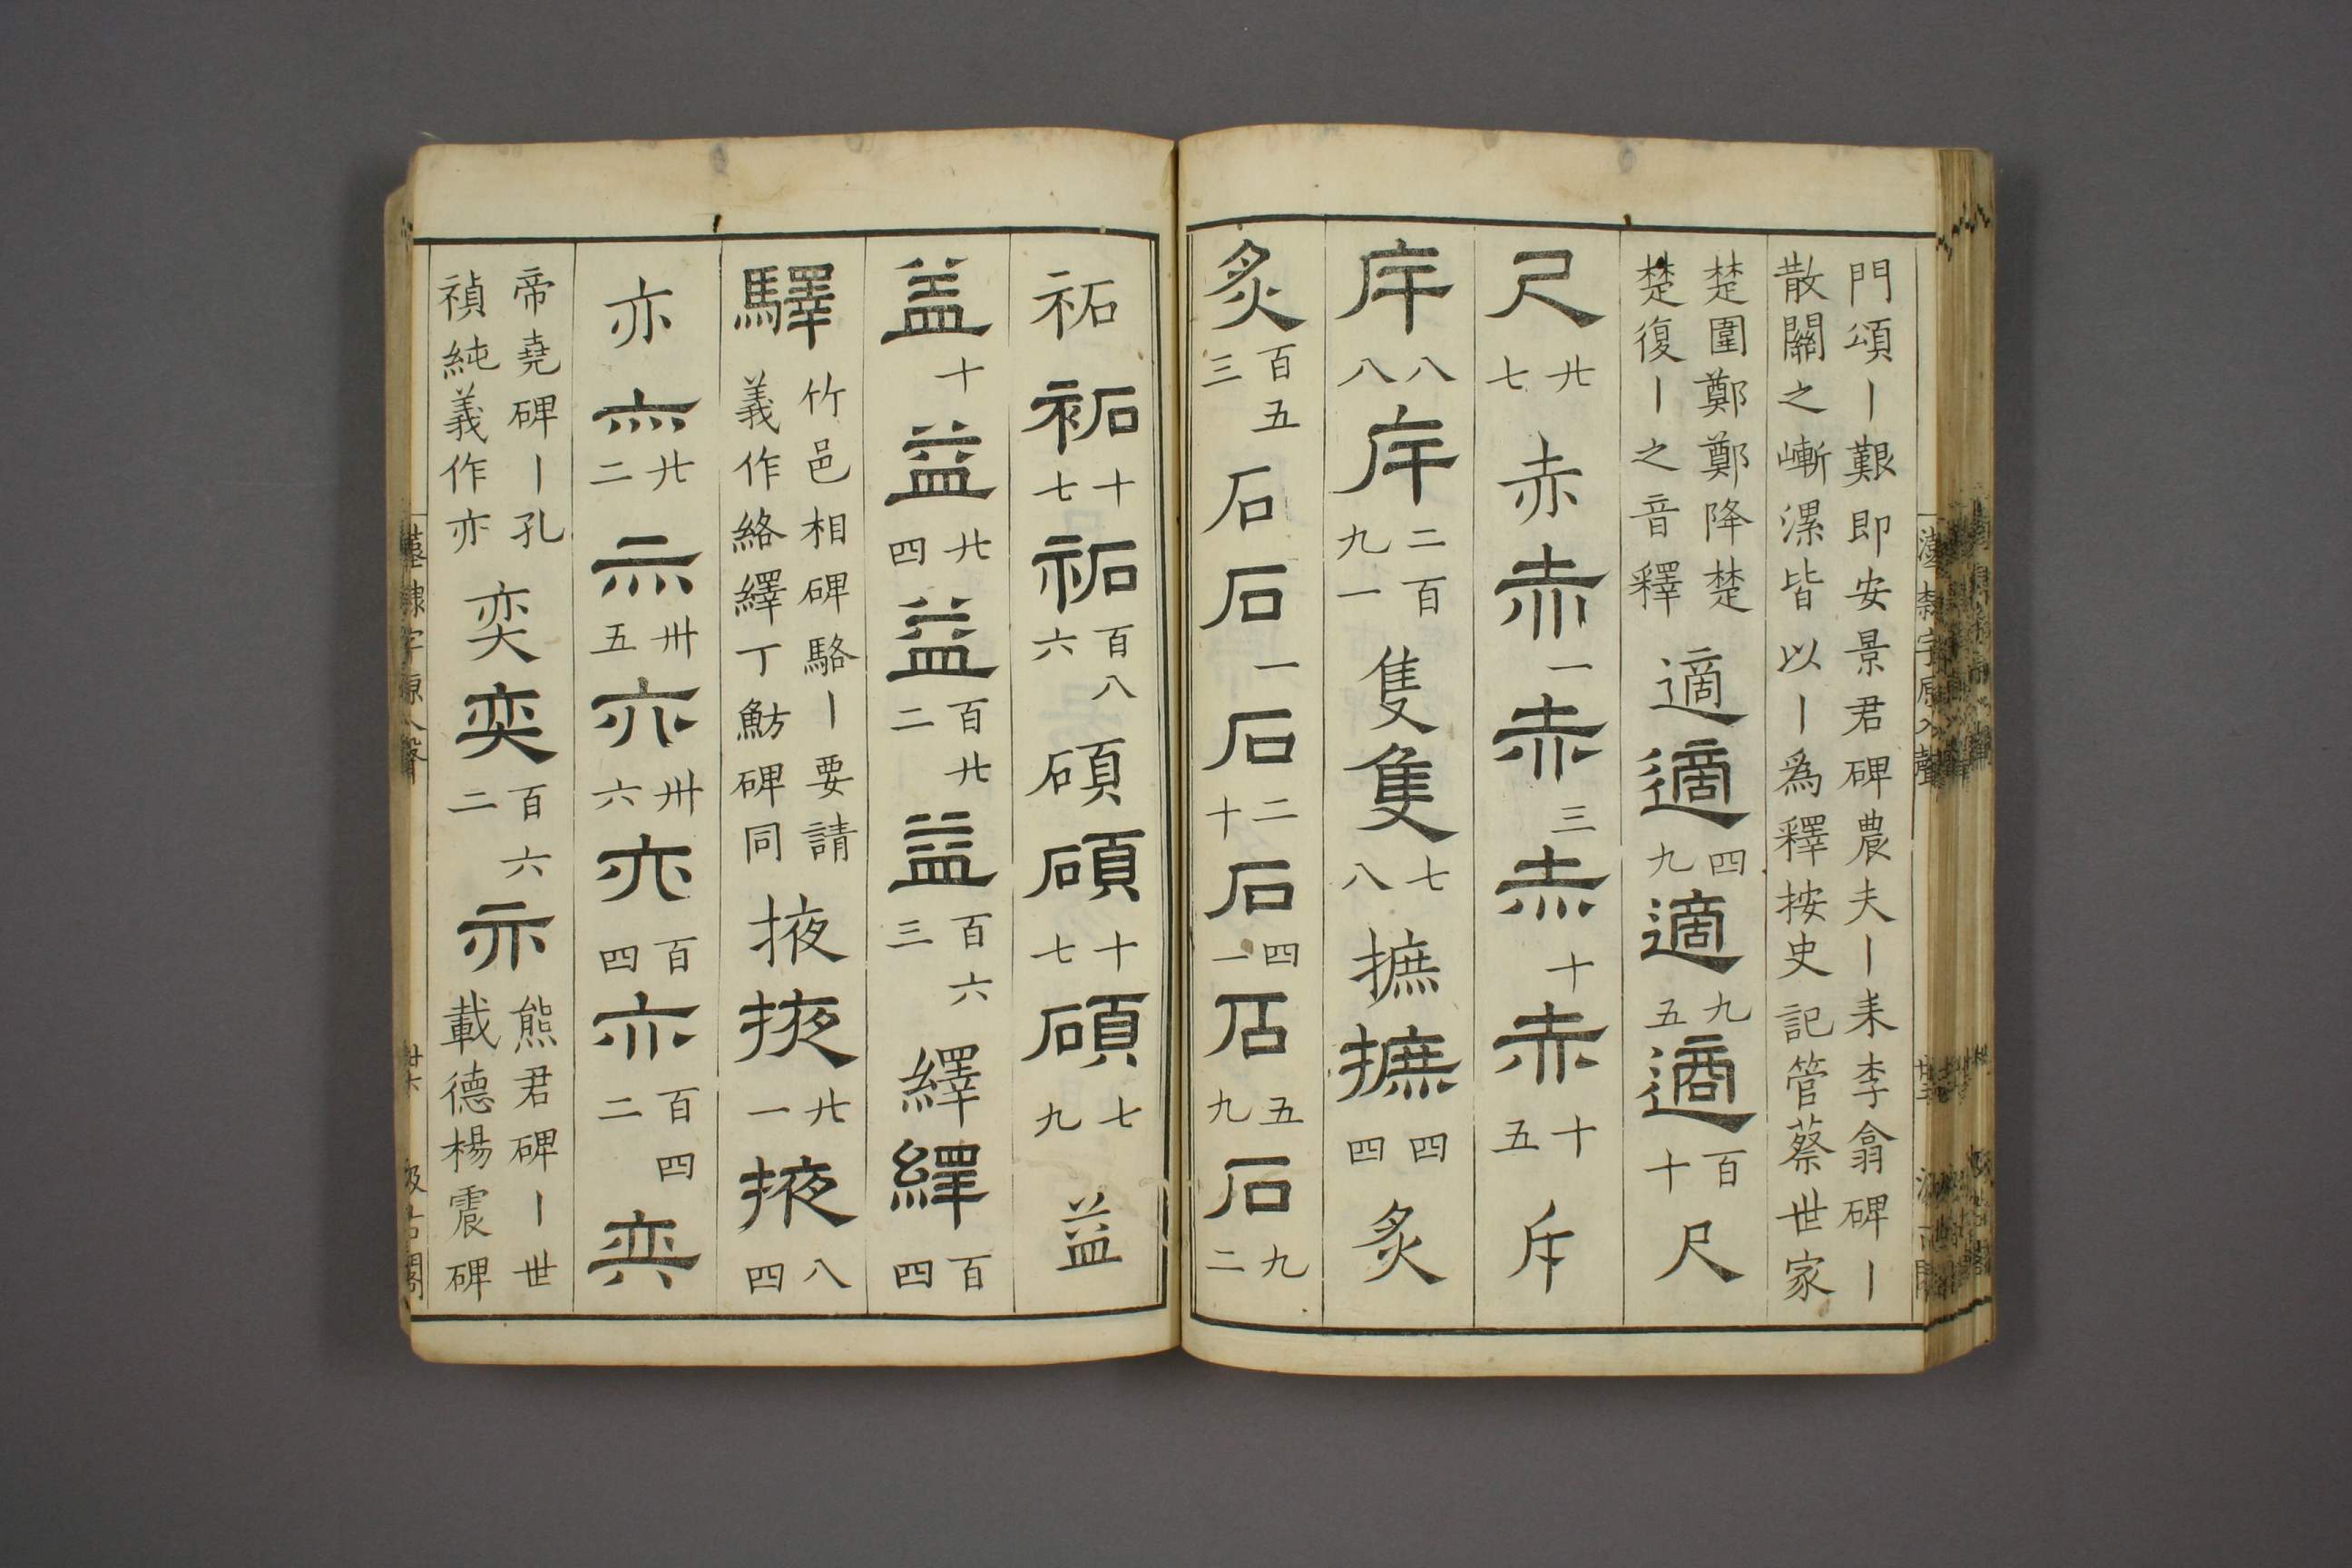 門頌丨艱即安景君碑農夫丨耒李翕碑丨
散關之嶃漯皆以丨爲釋按史記管蔡世家
楚圍鄭鄭降楚
楚復丨之音釋
適 適 四九 適 九五 適 百十 尺
尺 廿七 赤 赤 一 赤 三 赤 十 赤 十五 斥
斥 八八 斥 二百九一 隻 隻 七八 摭 摭 四四 炙
炙 百五三 石 石 一 石 二十 石 四一 石 五九 石 九二
祏 祏 十七 祏 百八六 碩 碩 十七 碩 七九 益
益 十 益 廿四 益 百廿二 益 百六三 繹 繹 百四
驛
竹邑相碑駱丨要請
義作絡繹丁魴碑同
掖 掖 廿一 掖 八四
亦 亦 廿二 亦 卅五 亦 卅六 亦 百四 亦 百四二 奕
帝堯碑丨孔
禎純義作亦
奕 奕 百六二 亦
熊君碑丨世
載德楊震碑
漢隸字原入聲
漢隸字原入聲
汲古閣